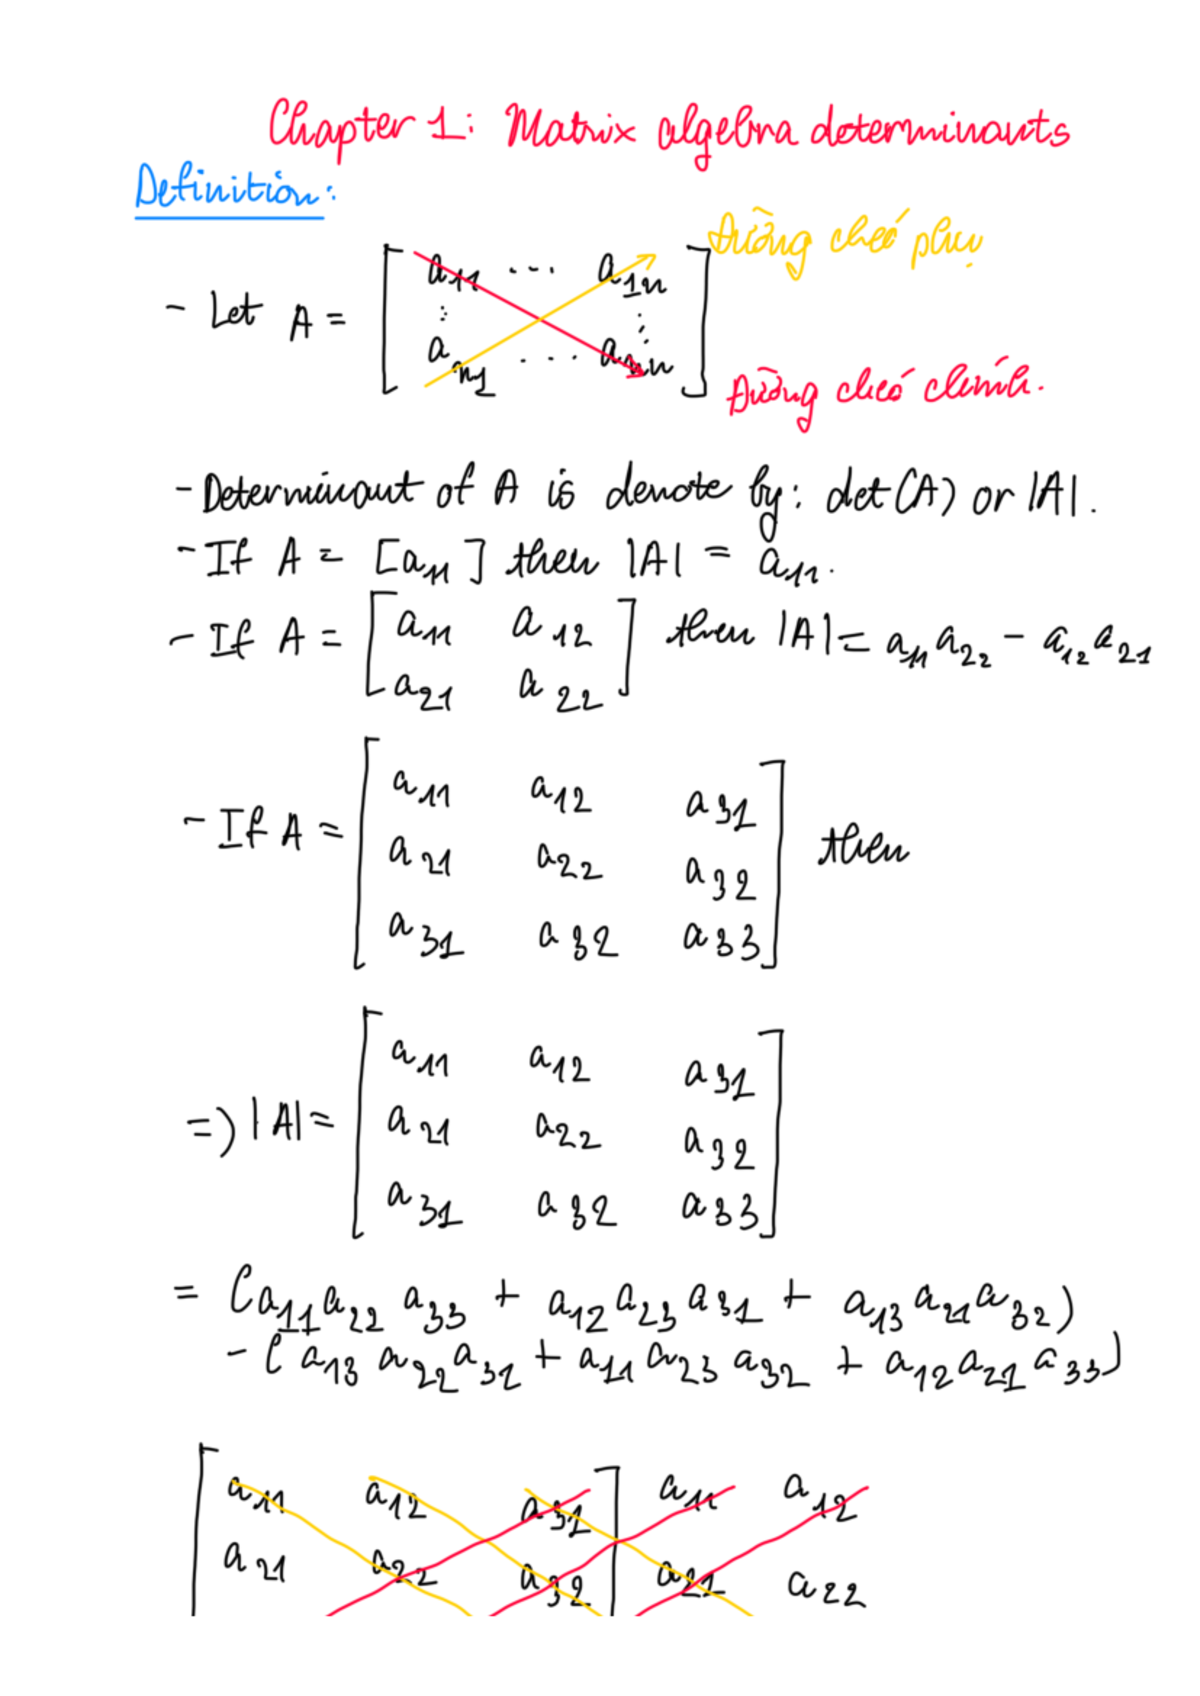 Chapter 1: Matrix algebra determinants
Definition:
Đường chéo phụ
- Let A = [ a11 ... a1n
⋮ ⋮
an1 ... ann ]
Đường chéo chính.
- Determinant of A is denote by: det(A) or |A|.
- If A = [a11] then |A| = a11.
- If A = [ a11 a12 ] then |A| = a11a22 - a12a21
a21 a22
a11 a12 a31
- If A = [ a21 a22 a32 ] then
a31 a32 a33
a11 a12 a31
=) |A| = [ a21 a22 a32 ]
a31 a32 a33
= (a11a22a33 + a12a23a31 + a13a21a32)
- (a13a22a31 + a11a23a32 + a12a21a33)
[ a11 a12 a31 ] a11 a12
a21 a22 a32 a21 a22